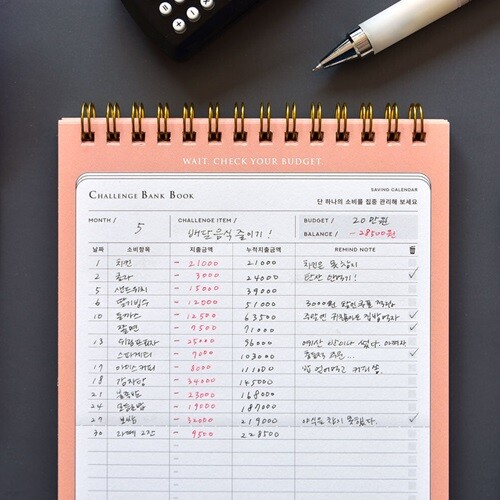 WAIT, CHECK YOUR BUDGET.
CHALLENGE BANK BOOK
SAVING CALENDAR
단 하나의 소비를 집중 관리해 보세요
MONTH / 5 CHALLENGE ITEM / 배달음식 줄이기! BUDGET / 20만원
BALANCE / -28500원
날짜 소비항목 지출금액 누적지출금액 REMIND NOTE
1 치킨 - 21000 21000 치킨은 못참지
2 콜라 - 3000 24000 탄산 안먹기!
5 샌드위치 - 15000 39000
6 딸기빙수 - 12000 51000 3000원 할인쿠폰
10 돈까스 - 12500 63500 집밥먹자
쫄면 - 7500 71000
13 - 25000 96000 썼다. 아껴쓰자
스파게티 - 7000 103000
17 아이스커피 - 8000 111000 밥 커피
18 감자탕 - 34000 145000
21 - 23000 168000
24 - 19000 187000
27 보쌈 - 32000 219000 야식은 참지 못했다.
30 라떼 2잔 - 9500 228500